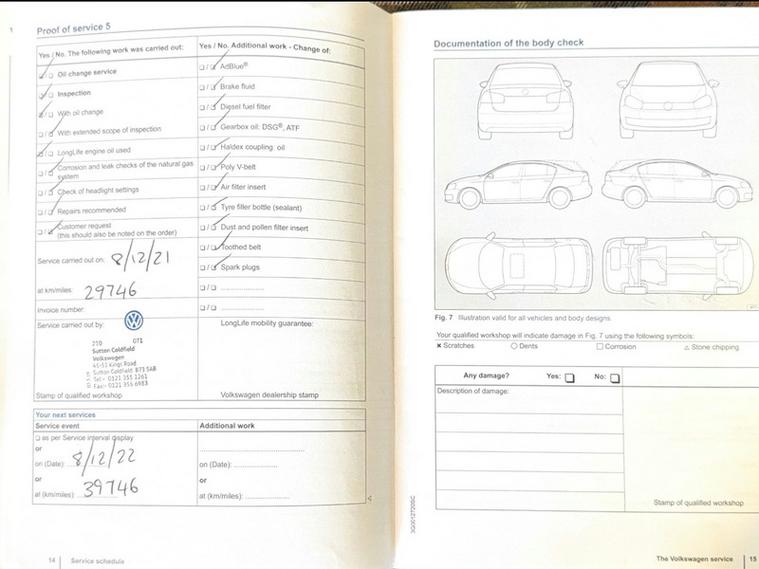 Proof of service 5
Yes / No. The following work was carried out:
Oil change service
Inspection
With oil change
With extended scope of inspection
LongLife engine oil used
Corrosion and leak checks of the natural gas
system
Check of headlight settings
Repairs recommended
Customer request
(this should also be noted on the order)
Service carried out on: 8/12/21
at km/miles: 29746
Invoice number:
Service carried out by:
210 071
Sutton Coldfield
Volkswagen
45-51 Kings Road
Sutton Coldfield B73 5AB
Tel:- 0121 355 1261
Fax:- 0121 355 6983
Stamp of qualified workshop
Yes / No. Additional work - Change of:
AdBlue®
Brake fluid
Diesel fuel filter
Gearbox oil: DSG®, ATF
Haldex coupling: oil
Poly V-belt
Air filter insert
Tyre filler bottle (sealant)
Dust and pollen filter insert
Toothed belt
Spark plugs
LongLife mobility guarantee:
Volkswagen dealership stamp
Your next services
Service event
as per Service interval display
or
on (Date): 8/12/22
or
at (km/miles): 39746
Additional work
on (Date):
or
at (km/miles):
14 | Service schedule
Documentation of the body check
Fig. 7 Illustration valid for all vehicles and body designs.
Your qualified workshop will indicate damage in Fig. 7 using the following symbols:
Scratches Dents Corrosion Stone chipping
Any damage? Yes: No:
Description of damage:
Stamp of qualified workshop
3G0012720SC
The Volkswagen service | 15